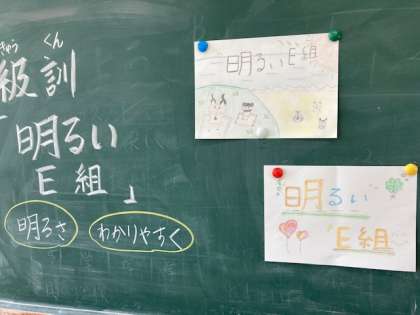 きゅう くん
級訓
「明るい
E組」
明るさ わかりやすく
明るいE組
明るい
E組